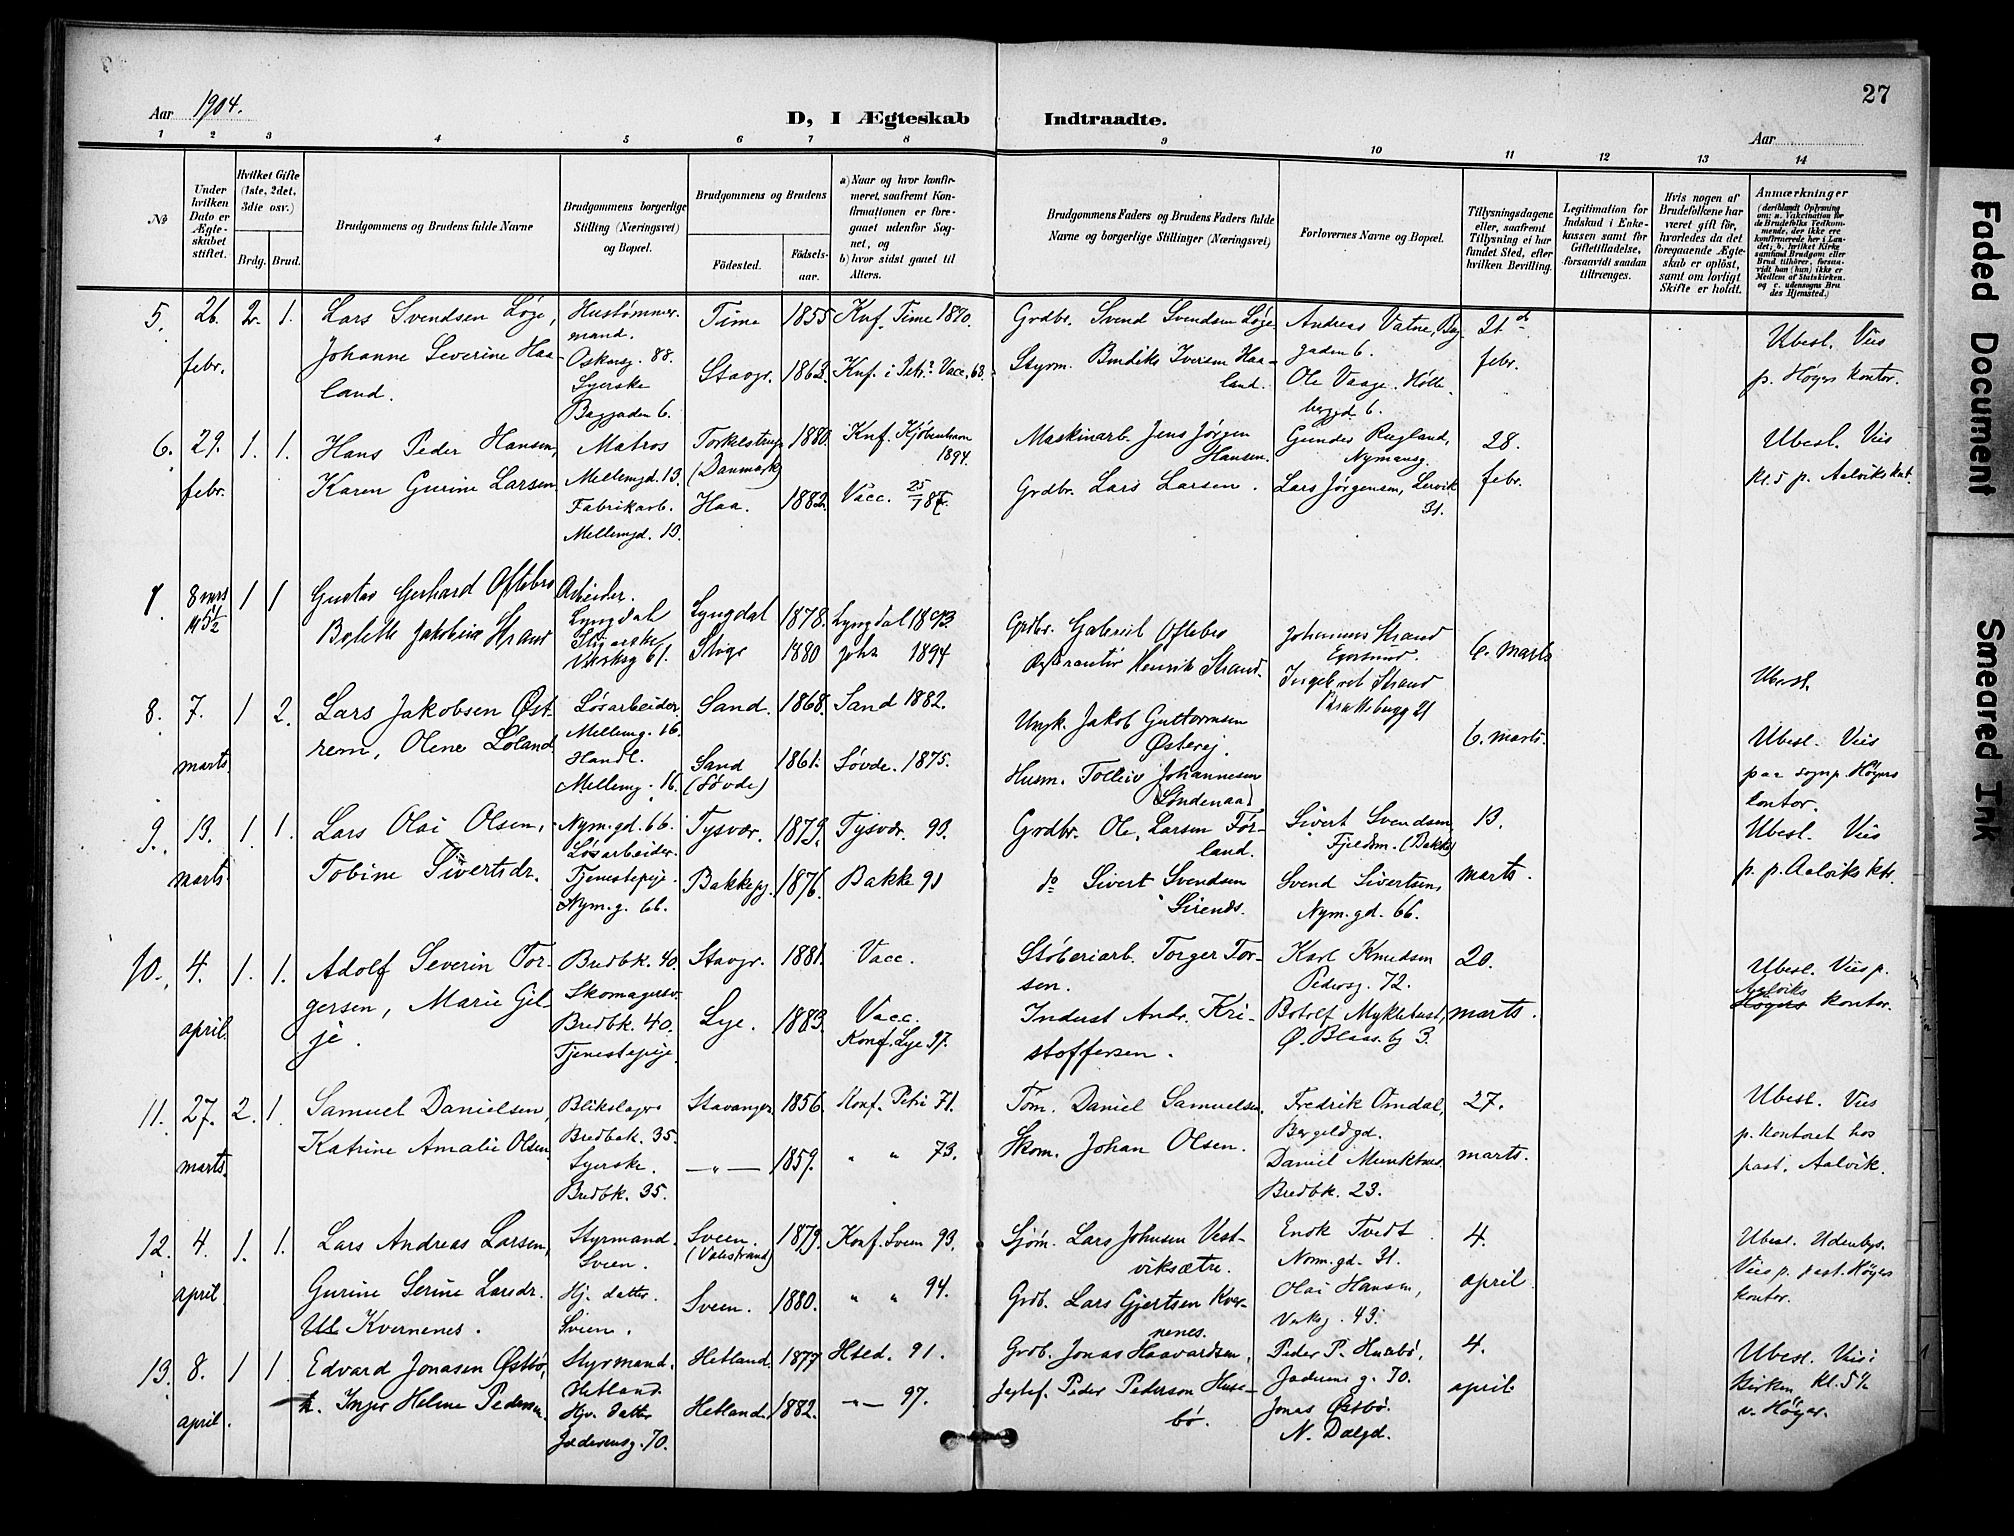 27
Aar 1904.
D, I Ægteskab Indtraadte.
Aar
1 2 3 4 5 6 7 8 9 10 11 12 13 14
No
Under hvilken Dato er Ægteskabet stiftet.
Hvilket Gifte (1ste, 2det, 3die osv.)
Brdg. Brud.
Brudgommens og Brudens fulde Navne
Brudgommens borgerlige Stilling (Næringsvei) og Bopæl.
Brudgommens og Brudens
Födested. Födsels-aar.
a) Naar og hvor konfirmeret, saafremt Konfirmationen er foregaaet udenfor Sognet, og
b) hvor sidst gaaet til Alters.
Brudgommens Faders og Brudens Faders fulde Navne og borgerlige Stillinger (Næringsvei)
Forlovernes Navne og Bopæl.
Tillysningsdagene eller, saafremt Tillysning ei har fundet Sted, efter hvilken Bevilling.
Legitimation for Indskud i Enkekassen samt for Giftetilladelse, forsaavidt saadan tiltrænges.
Hvis nogen af Brudefolkene har været gift før, hvorledes da det foregaaende Ægteskab er opløst, samt om lovligt Skifte er holdt.
Anmærkninger
(deriblandt Oplysning om: a. Vakcination for de Brudefolks Vedkommende, der ikke ere konfirmerede her i Landet; b. hvilket Kirkesamfund Brudgom eller Brud tilhører, forsaavidt han (hun) ikke er Medlem af Statskirken, og c. udensogns Brudes Hjemsted.)
5. 26. febr. 2. 1.
Lars Svendsen Løge,
Johanne Severine Haa-
land.
Hustømmer-
mand.
Oskarsg. 88.
Syerske
Baggaden 6.
Time 1855 Knf. Time 1870.
Stavgr. 1863. Knf. i Petri Vacc. 63.
Grdbr. Svend Svendsen Løge
Styrm. Bendiks Iversen Haa-
land.
Andreas Vatne, Bag-
gaden 6.
Ole Vaage. Holb-
berggd 6.
21 febr.
Ubesl. Vies
p. Høyers kontor.
6. 29. febr. 1. 1.
Hans Peder Hansen,
Karen Gurine Larsen
Matros
Mellemgd. 13.
Fabrikarb.
Mellemgd. 13.
Torkelstrup (Danmark) 1880. Knf. Kjøbenhavn 1894.
Haa. 1882. Vacc.
Maskinarb. Jens Jørgen
Hansen.
Grdbr. Lars Larsen.
Gunder Rugland,
Nymansg.
Lars Jørgensen, Lervik
31.
28. febr.
Ubesl. Vies
kl. 5 p. Aalviks knt.
7 8 mrs 1 1
Gustav Gerhard Oftebro
Bolette Jakobine Strand
Arbeider.
Lyngdal
Verksg 61.
Lyngdal 1878. Lyngdal 1893.
1880 Joh. 1894
Grdbr. Gabriel Oftebro
Henrik Strand
Johannes Strand
Egersund.
Ingebret Strand
Brattebugg 21
6. marts
Ubesl.
8. 7. marts. 1 2.
Lars Jakobsen Øst-
rem, Olene Løland
Løsarbeider.
Mellemg. 16.
Handl.
Mellemg. 16.
Sand. 1868. Sand 1882.
Sand (Søvde) 1861. Søvde. 1875.
Jakob Guttormsen
Østerej.
Husm. Tolleiv Johannesen
(Søndenaa)
6. marts.
Ubesl. Vies
paa sognp. Høyers
kontor.
9. 13. marts. 1. 1.
Lars Olai Olsen,
Tobine Sivertsdr.
Nym.gd. 66.
Løsarbeider.
Tjenestepige.
Nym.g. 66.
Tysvær. 1879. Tysvær. 93.
Bakke pg. 1876. Bakke 91
Grdbr. Ole Larsen Før-
land.
do Sivert Svendsen
Sirends.
Sivert Svendsen
Fjeldsm. (Bakke)
Svend Sivertsen,
Nym.gd. 66.
13. marts.
Ubesl. Vies
p. p. Aalviks ktr.
10. 4. april. 1. 1.
Adolf Severin Tor-
gersen, Marie Gil-
je.
Bredbk. 40.
Skomagersv.
Bredbk. 40.
Tjenestepige.
Stavgr. 1881. Vacc.
Lye. 1883. Vacc.
Konf. Lye 97.
Støberiarb. Torger Tor-
sen.
Inderst Andr. Kri-
stoffersen.
Karl Knudsen
Pedersg. 72.
Botolf Myklebust,
Ø. Blaas.bg 3.
20. marts.
Ubesl. Vies p.
Aalviks
Høyers kontor.
11. 27. marts. 2. 1.
Samuel Danielsen,
Katrine Amalie Olsen
Blikslager
Bredbak. 35.
Syerske.
Bredbk. 35.
Stavanger 1856. Konf. Petri 71.
—"— 1859. " " 73.
Tøm. Daniel Samuelsen.
Skom. Johan Olsen.
Fredrik Omdal,
Bergelsgd.
Daniel
Bredbk. 23.
27. marts.
Ubesl. Vies
p. kontoret hos
past. Aalvik.
12. 4. april 1. 1.
Lars Andreas Larsen,
Gurine Serine Larsdr.
Kvernenes.
Styrmand.
Sveen.
Hj. datter.
Sveen.
Sveen. (Valestrand) 1879. Konf. Sveen 93.
Sveen. 1880. " " 94.
Sjøm. Lars Johnsen Vest-
viksætre.
Grdb. Lars Gjertsen Kver-
nenes.
Enok Tvedt
Norm.gd. 31.
Olai Hansen,
Verksg. 43.
4. april.
Ubesl. Udenbys.
Vies p. past. Høyers
kontor.
13. 8. april. 1 1
Edvard Jonasen Østbø,
Inger Helene Pedersen.
Styrmand.
Hetland.
Hjv. datter
Jæderensg. 70.
Hetland. 1877 Htld. 91.
Hetland. 1882. —"— 97.
Grdb. Jonas Haavardsen,
Peder Pederson Huse-
bø.
Peder P. Husebø,
Jæderens g. 70.
Jonas Østbø.
N. Dalgd.
4. april.
Ubesl. Vies i
Kirken kl. 5 1/2
v. Høyer.
Faded Document
Smeared Ink